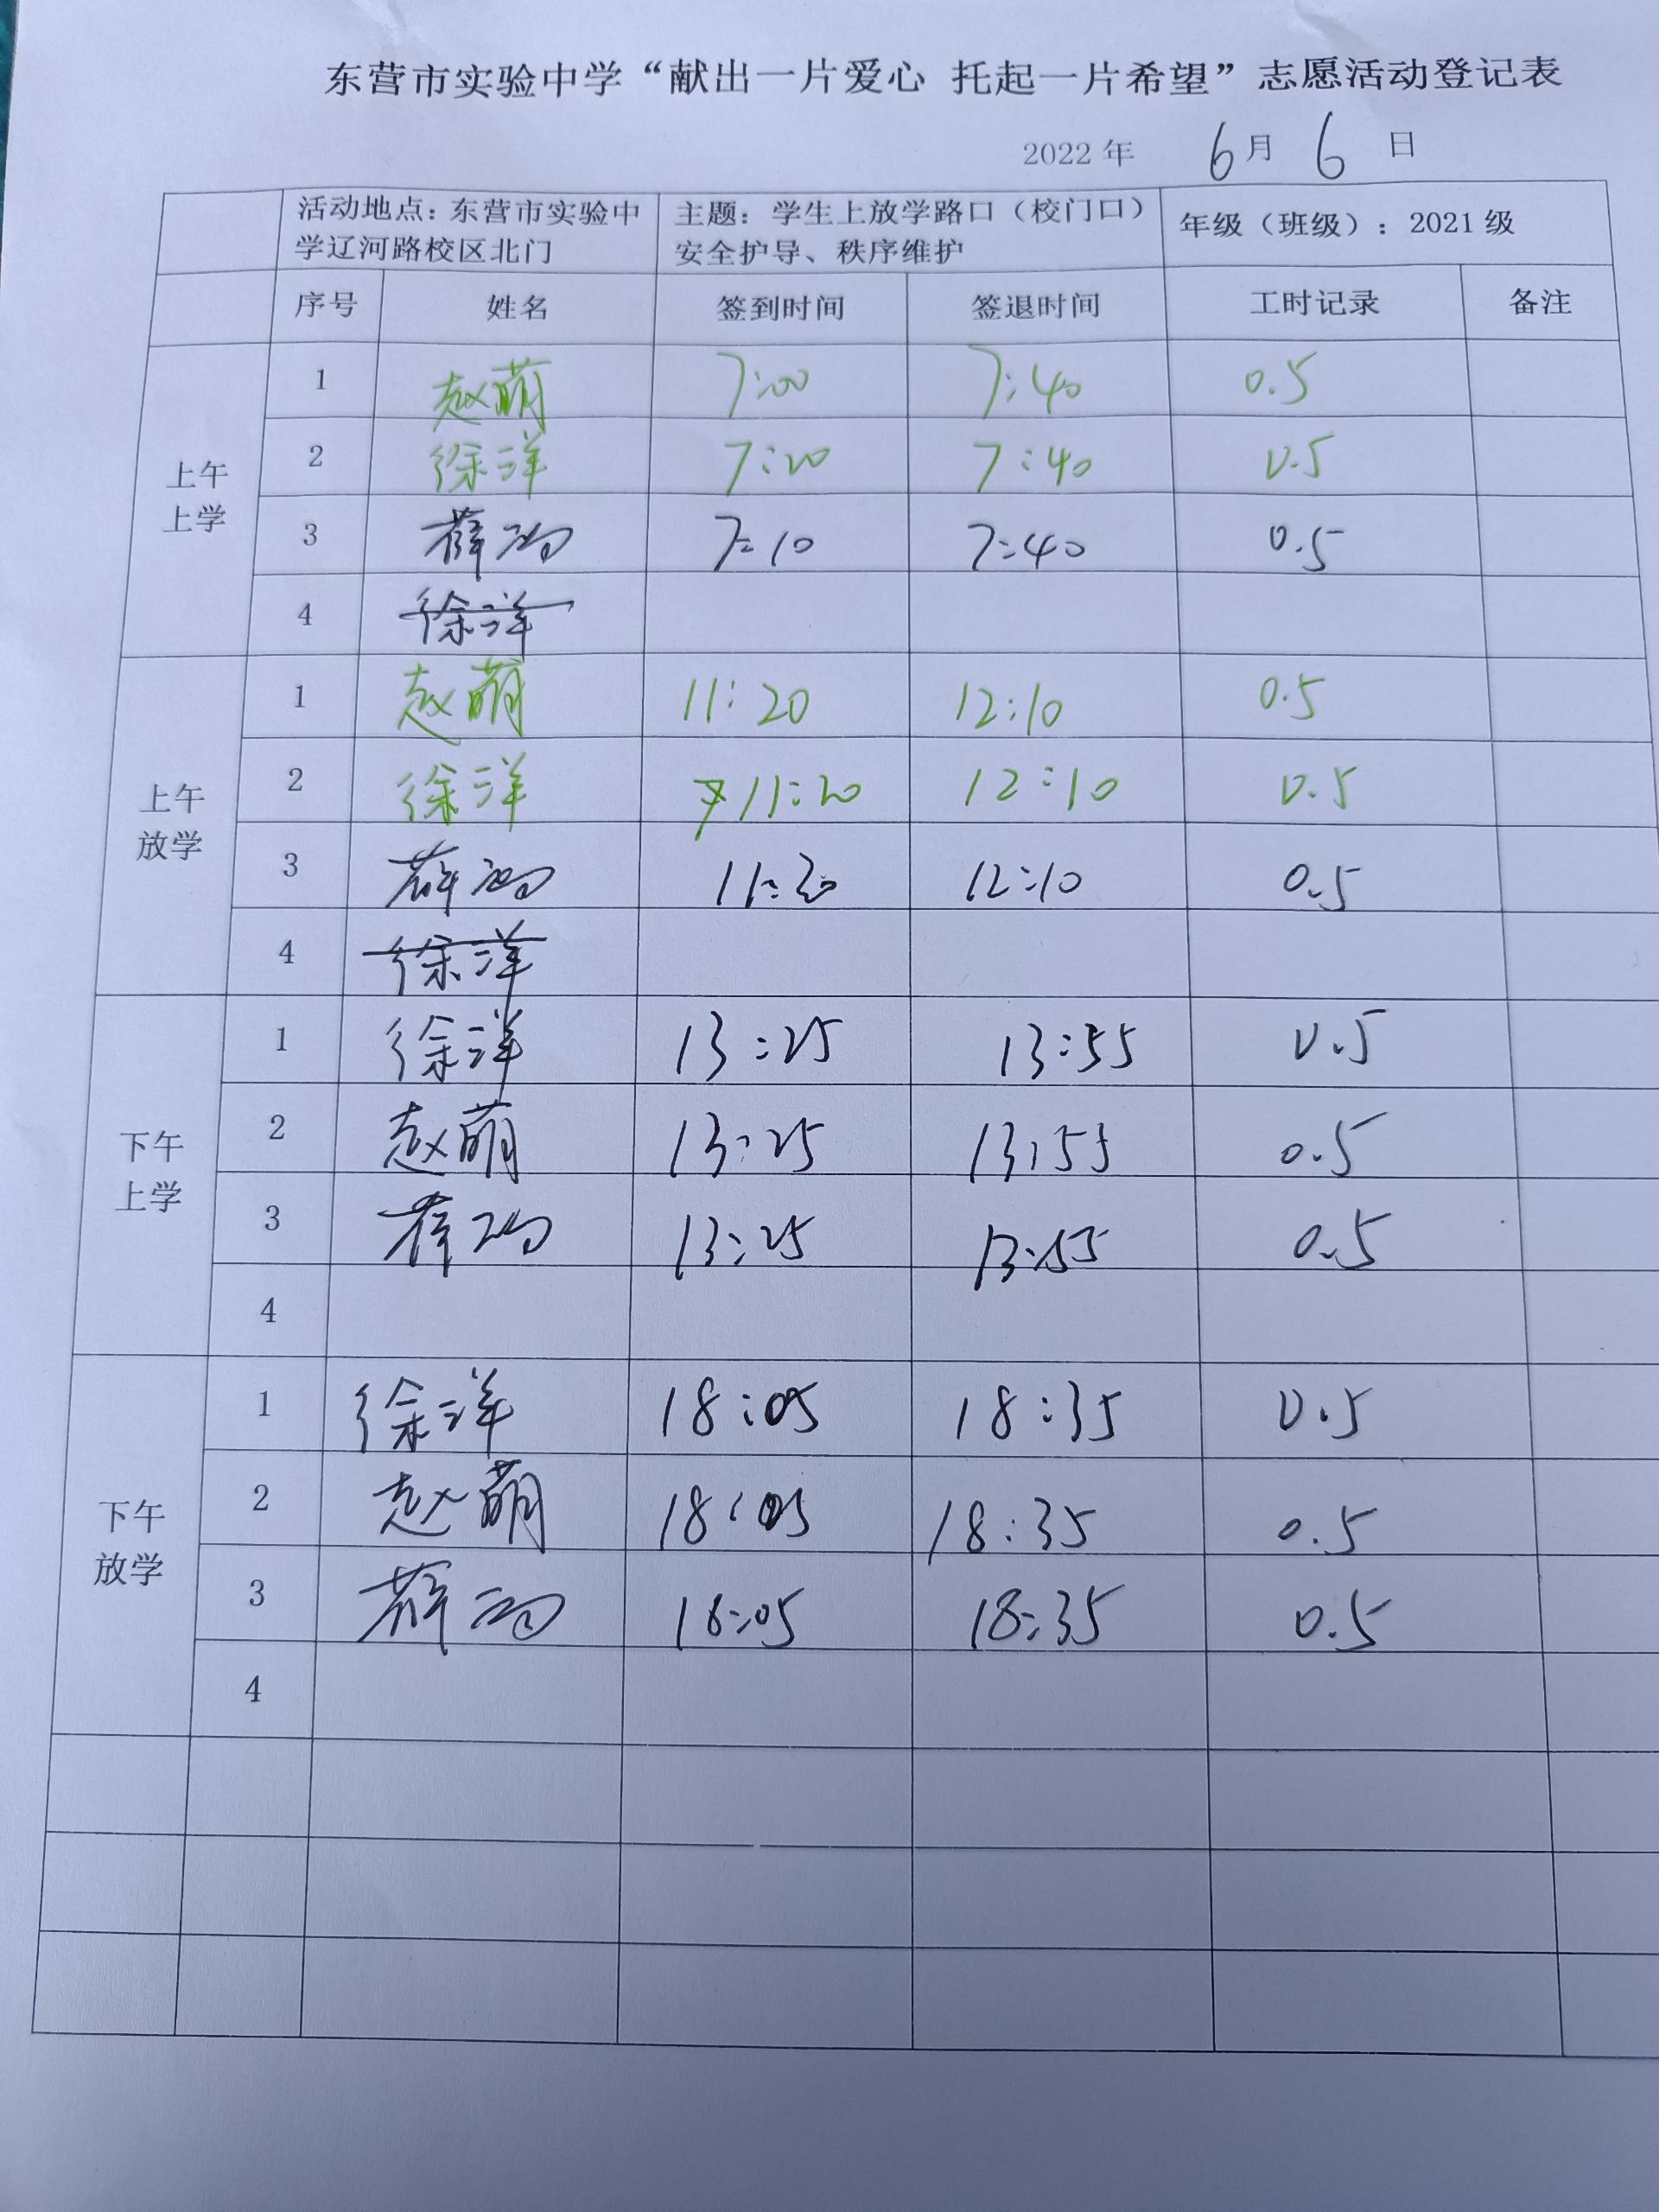 东营市实验中学“献出一片爱心 托起一片希望”志愿活动登记表
2022 年 6 月 6 日
活动地点：东营市实验中学辽河路校区北门 主题：学生上放学路口（校门口）安全护导、秩序维护 年级（班级）：2021 级
序号 姓名 签到时间 签退时间 工时记录 备注
上午上学
1 赵萌 7:00 7:40 0.5
2 徐洋 7:20 7:40 0.5
3 薛 7:10 7:40 0.5
4 徐洋
上午放学
1 赵萌 11:20 12:10 0.5
2 徐洋 11:20 12:10 0.5
3 薛 11:20 12:10 0.5
4 徐洋
下午上学
1 徐洋 13:25 13:55 0.5
2 赵萌 13:25 13:55 0.5
3 薛 13:25 13:55 0.5
4
下午放学
1 徐洋 18:05 18:35 0.5
2 赵萌 18:05 18:35 0.5
3 薛 18:05 18:35 0.5
4